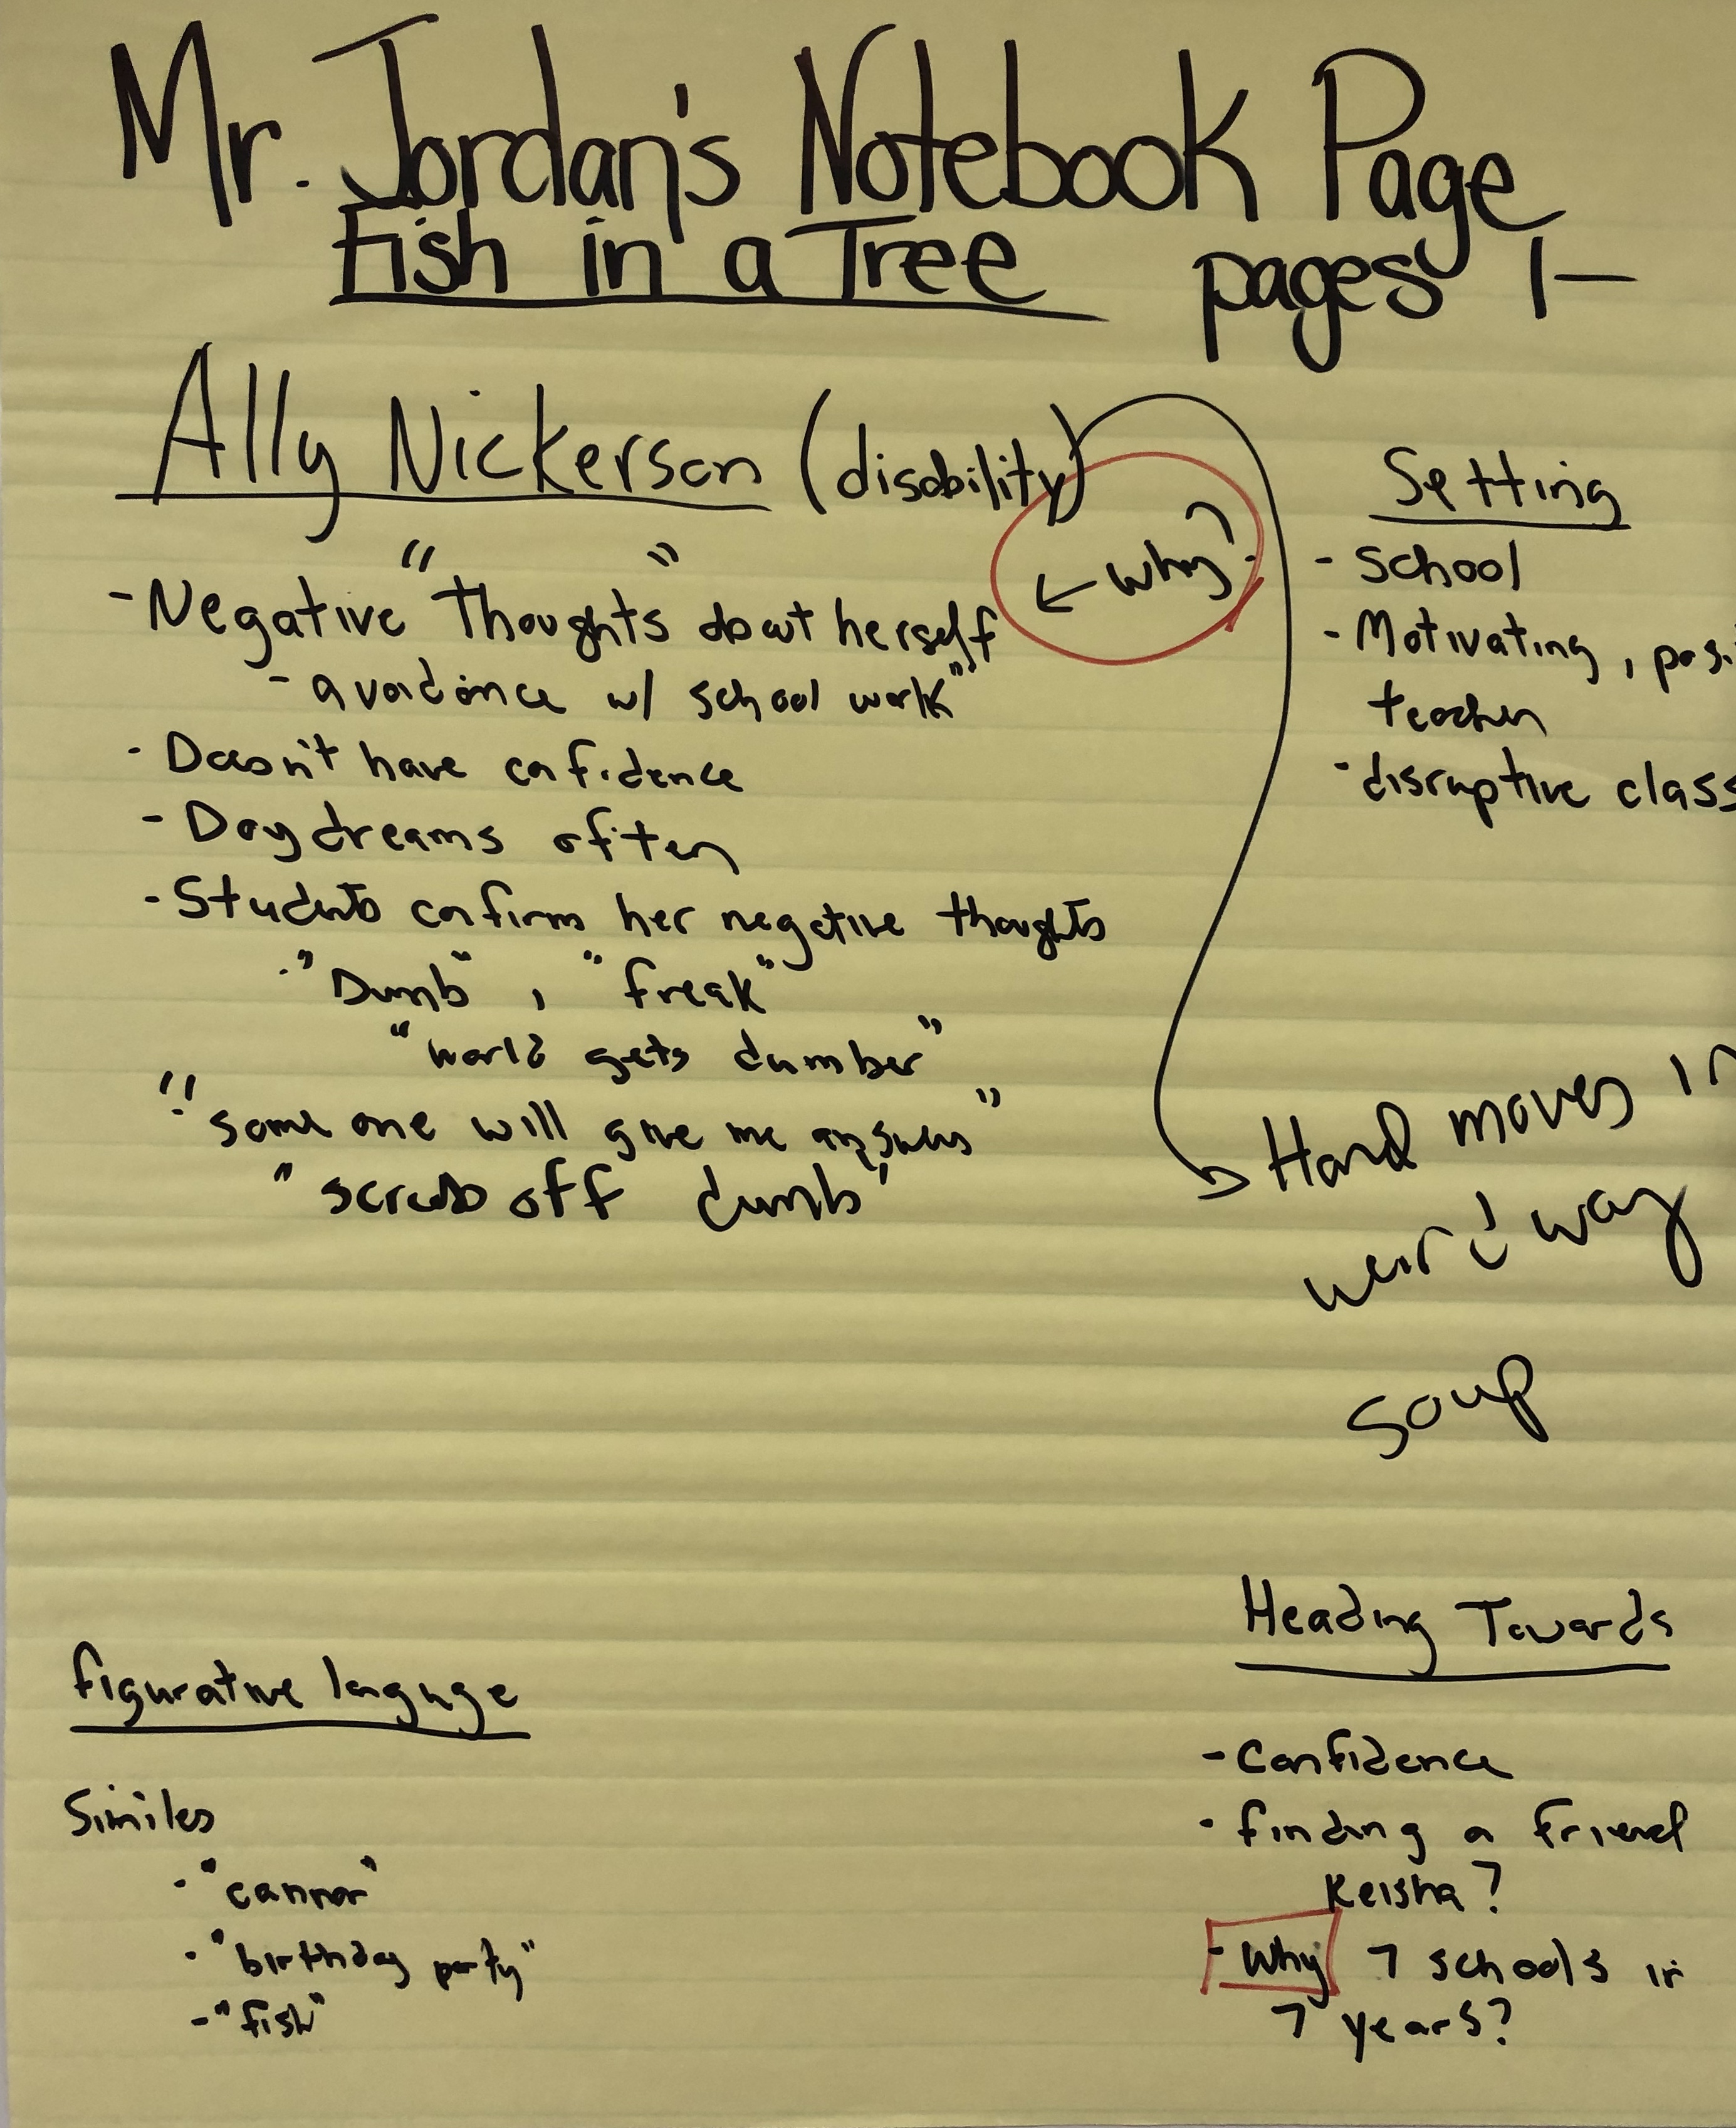 Mr. Jordan's Notebook Page
Fish in a Tree pages 1-
Ally Nickerson (disability)
← why?
- Negative "Thoughts" about herself
- avoidance w/ school work"
- Doesn't have confidence
- Daydreams often
- Students confirm her negative thoughts
- "Dumb", "freak"
"world gets dumber"
"someone will give me answers"
"scrub off dumb"
Setting
- school
- Motivating, posi
teacher
- disruptive class
Hand moves in
weird way
soup
figurative laguge
Similes
- "cannon"
- "birthday party"
- "fish"
Heading Towards
- Confidence
- finding a friend
Keisha?
- Why 7 schools in
7 years?